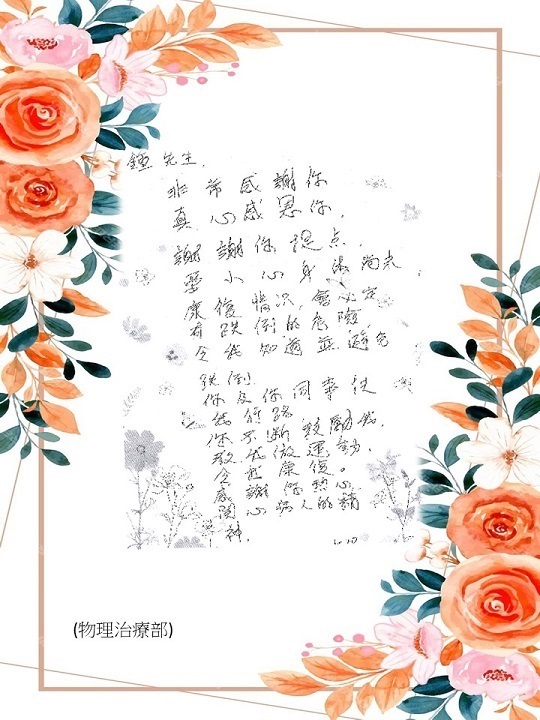 鍾先生,
非常感謝你
真心感恩你,
謝謝你提点,
要小心身體尚未
康復情況,會必定
有跌倒的危險,
令我知道並避免
跌倒.
你及你同事
我行路,
你不斷鼓勵我,
教我做運動,
令我康復。
感謝你熱心
關心病人的精
神
(物理治療部)